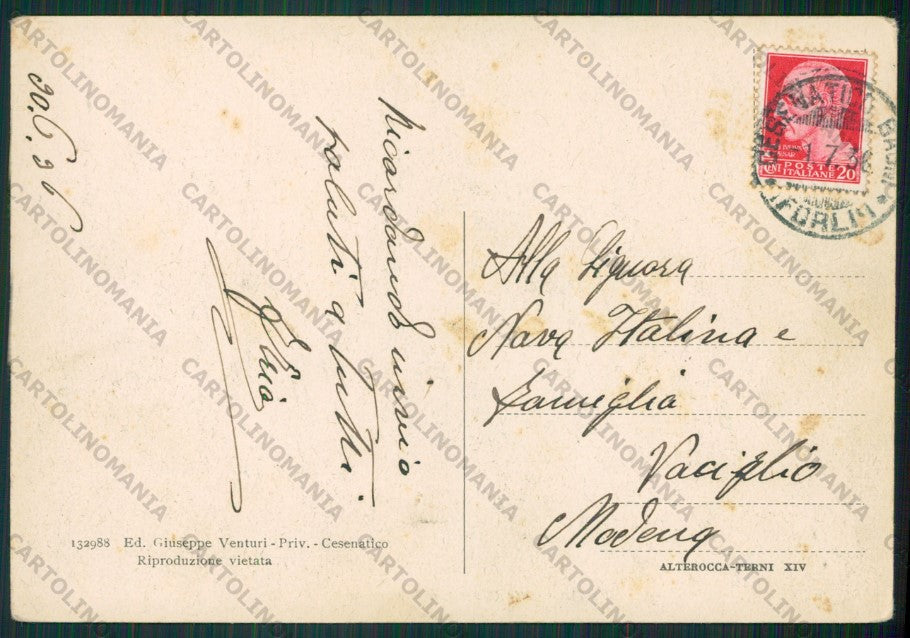 30.6.36
Ricordandovi invio
saluti a tutti.
CESENATICO BAGNI
1.7.36
(FORLI)
POSTE
ITALIANE 20
CENT
Alla Signora
Nava Italina e
famiglia
Vaciglio
Modena
132988 Ed. Giuseppe Venturi - Priv. - Cesenatico
Riproduzione vietata
ALTEROCCA-TERNI XIV
CARTOLINOMANIA